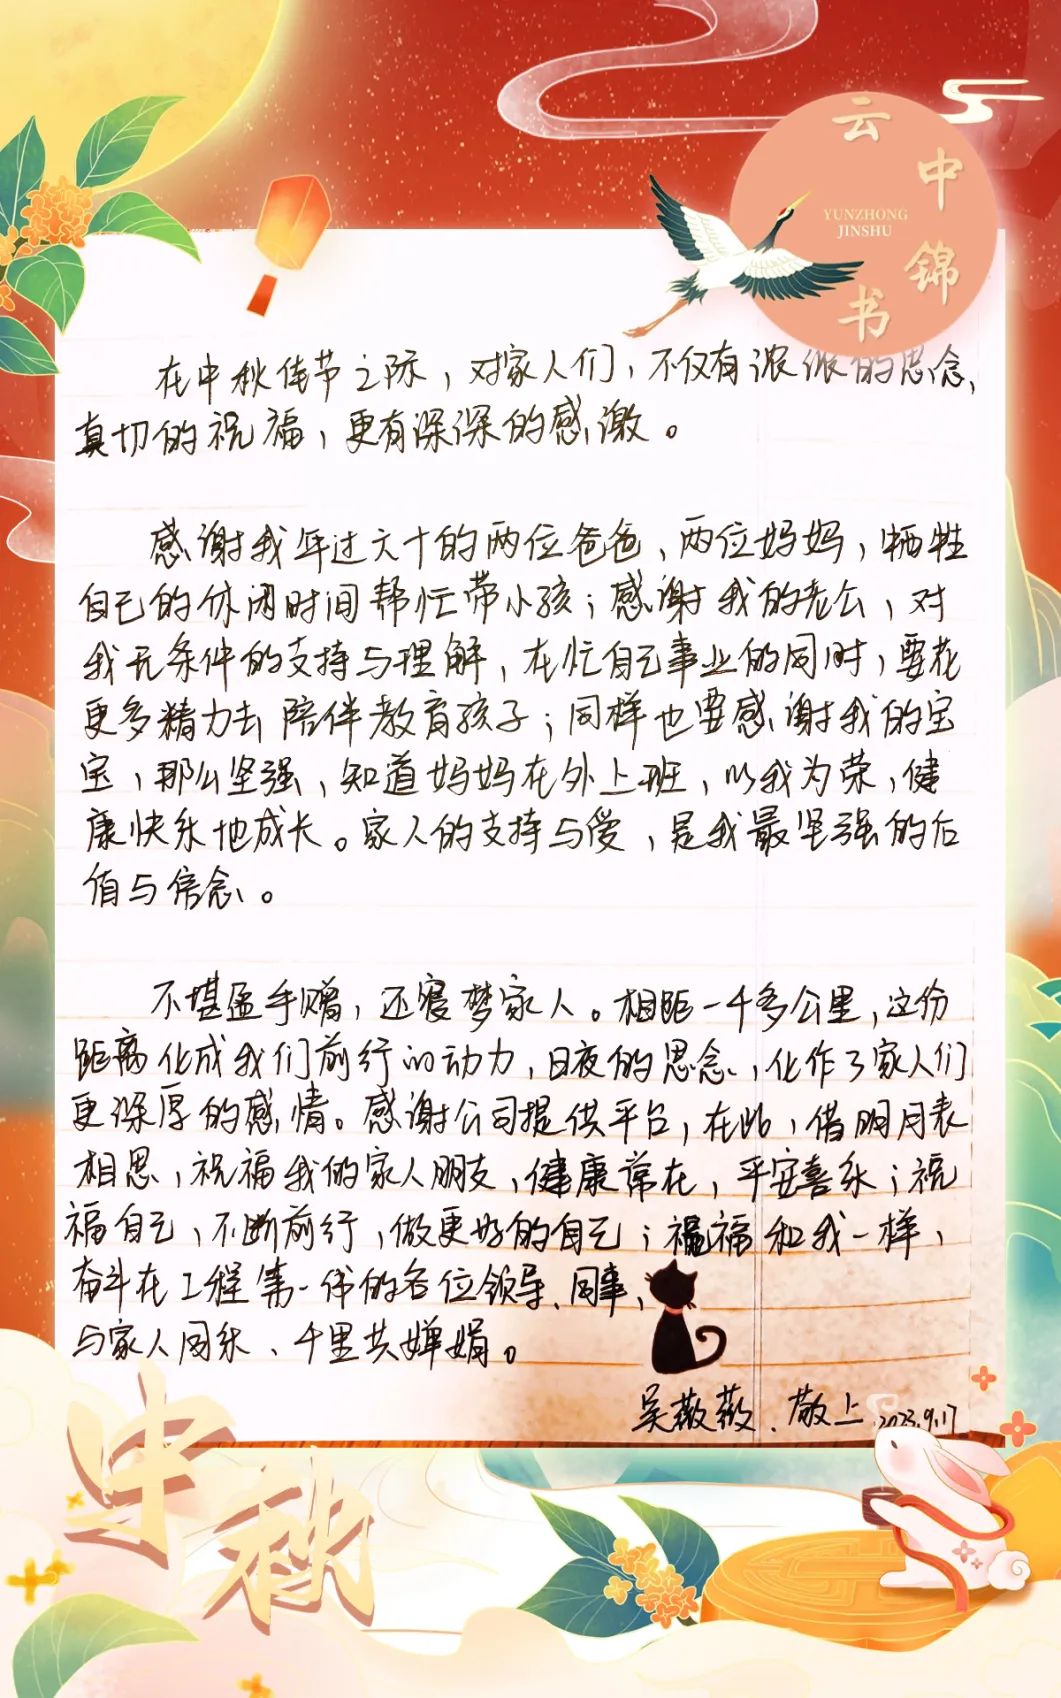 云中锦书
YUNZHONG
JINSHU
在中秋佳节之际，对家人们，不仅有浓浓的思念，
真切的祝福，更有深深的感激。
感谢我年过六十的两位爸爸、两位妈妈，牺牲
自己的休闲时间帮忙带小孩；感谢我的老公，对
我无条件的支持与理解，在忙自己事业的同时，要花
更多精力去陪伴教育孩子；同样也要感谢我的宝
宝，那么坚强，知道妈妈在外上班，以我为荣，健
康快乐地成长。家人的支持与爱，是我最坚强的后
盾与信念。
不堪盈手赠，还寝梦家人。相距一千多公里，这份
距离化成我们前行的动力，日夜的思念，化作了家人们
更深厚的感情。感谢公司提供平台，在此，借明月表
相思，祝福我的家人朋友，健康常在，平安喜乐；祝
福自己，不断前行，做更好的自己；祝福和我一样，
奋斗在工程第一线的各位领导、同事，
与家人同乐、千里共婵娟。
吴薇薇.敬上 2023.9.17
中秋